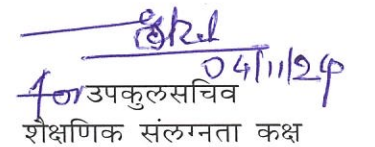 04/11/24
for उपकुलसचिव
शैक्षणिक संलग्नता कक्ष